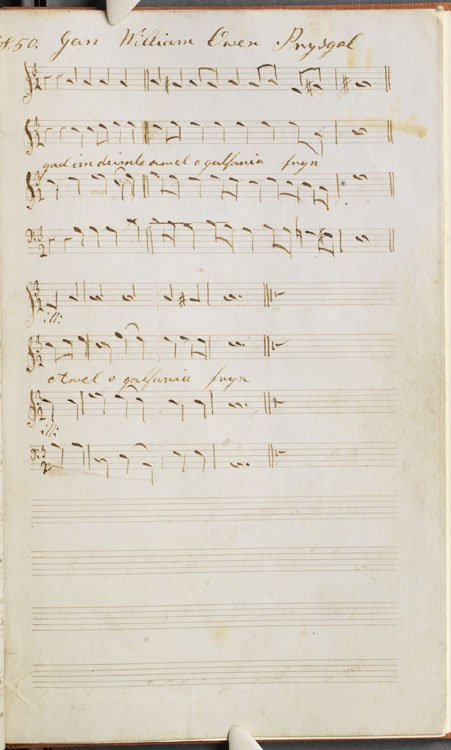 50. Gan William Owen Prysgol
gad im deimlo awel o galfaria fryn
:||:
Awel o galfaria fryn
:||: